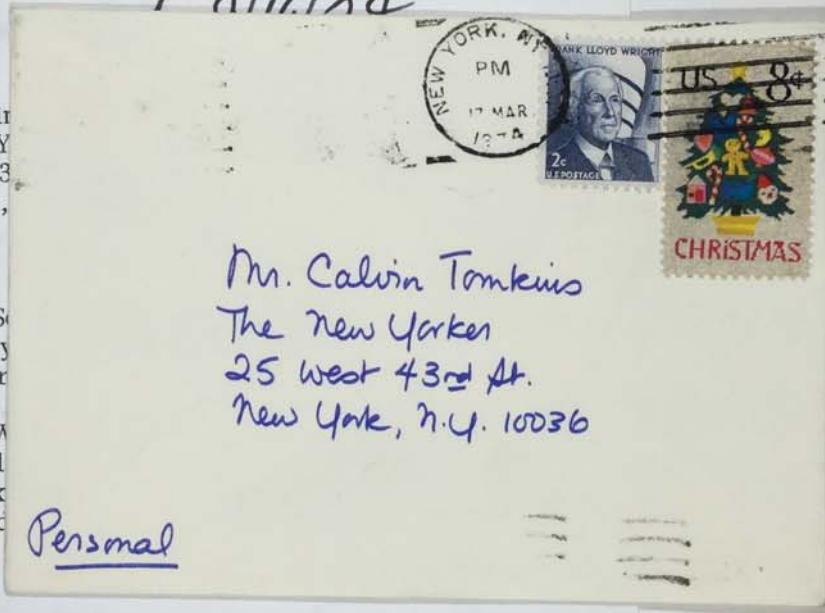 NEW YORK, NY
PM
17 MAR
1974
FRANK LLOYD WRIGHT
2c
U.S. POSTAGE
US 8¢
CHRISTMAS
Mr. Calvin Tomkins
The New Yorker
25 West 43rd St.
New York, N.Y. 10036
Personal